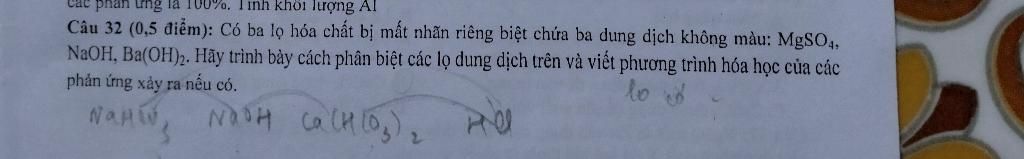 các phản ứng là 100%. Tính khối lượng Al
Câu 32 (0,5 điểm): Có ba lọ hóa chất bị mất nhãn riêng biệt chứa ba dung dịch không màu: MgSO₄,
NaOH, Ba(OH)₂. Hãy trình bày cách phân biệt các lọ dung dịch trên và viết phương trình hóa học của các
phản ứng xảy ra nếu có.
NaHCO₃ NaOH Ca(HCO₃)₂ HCl